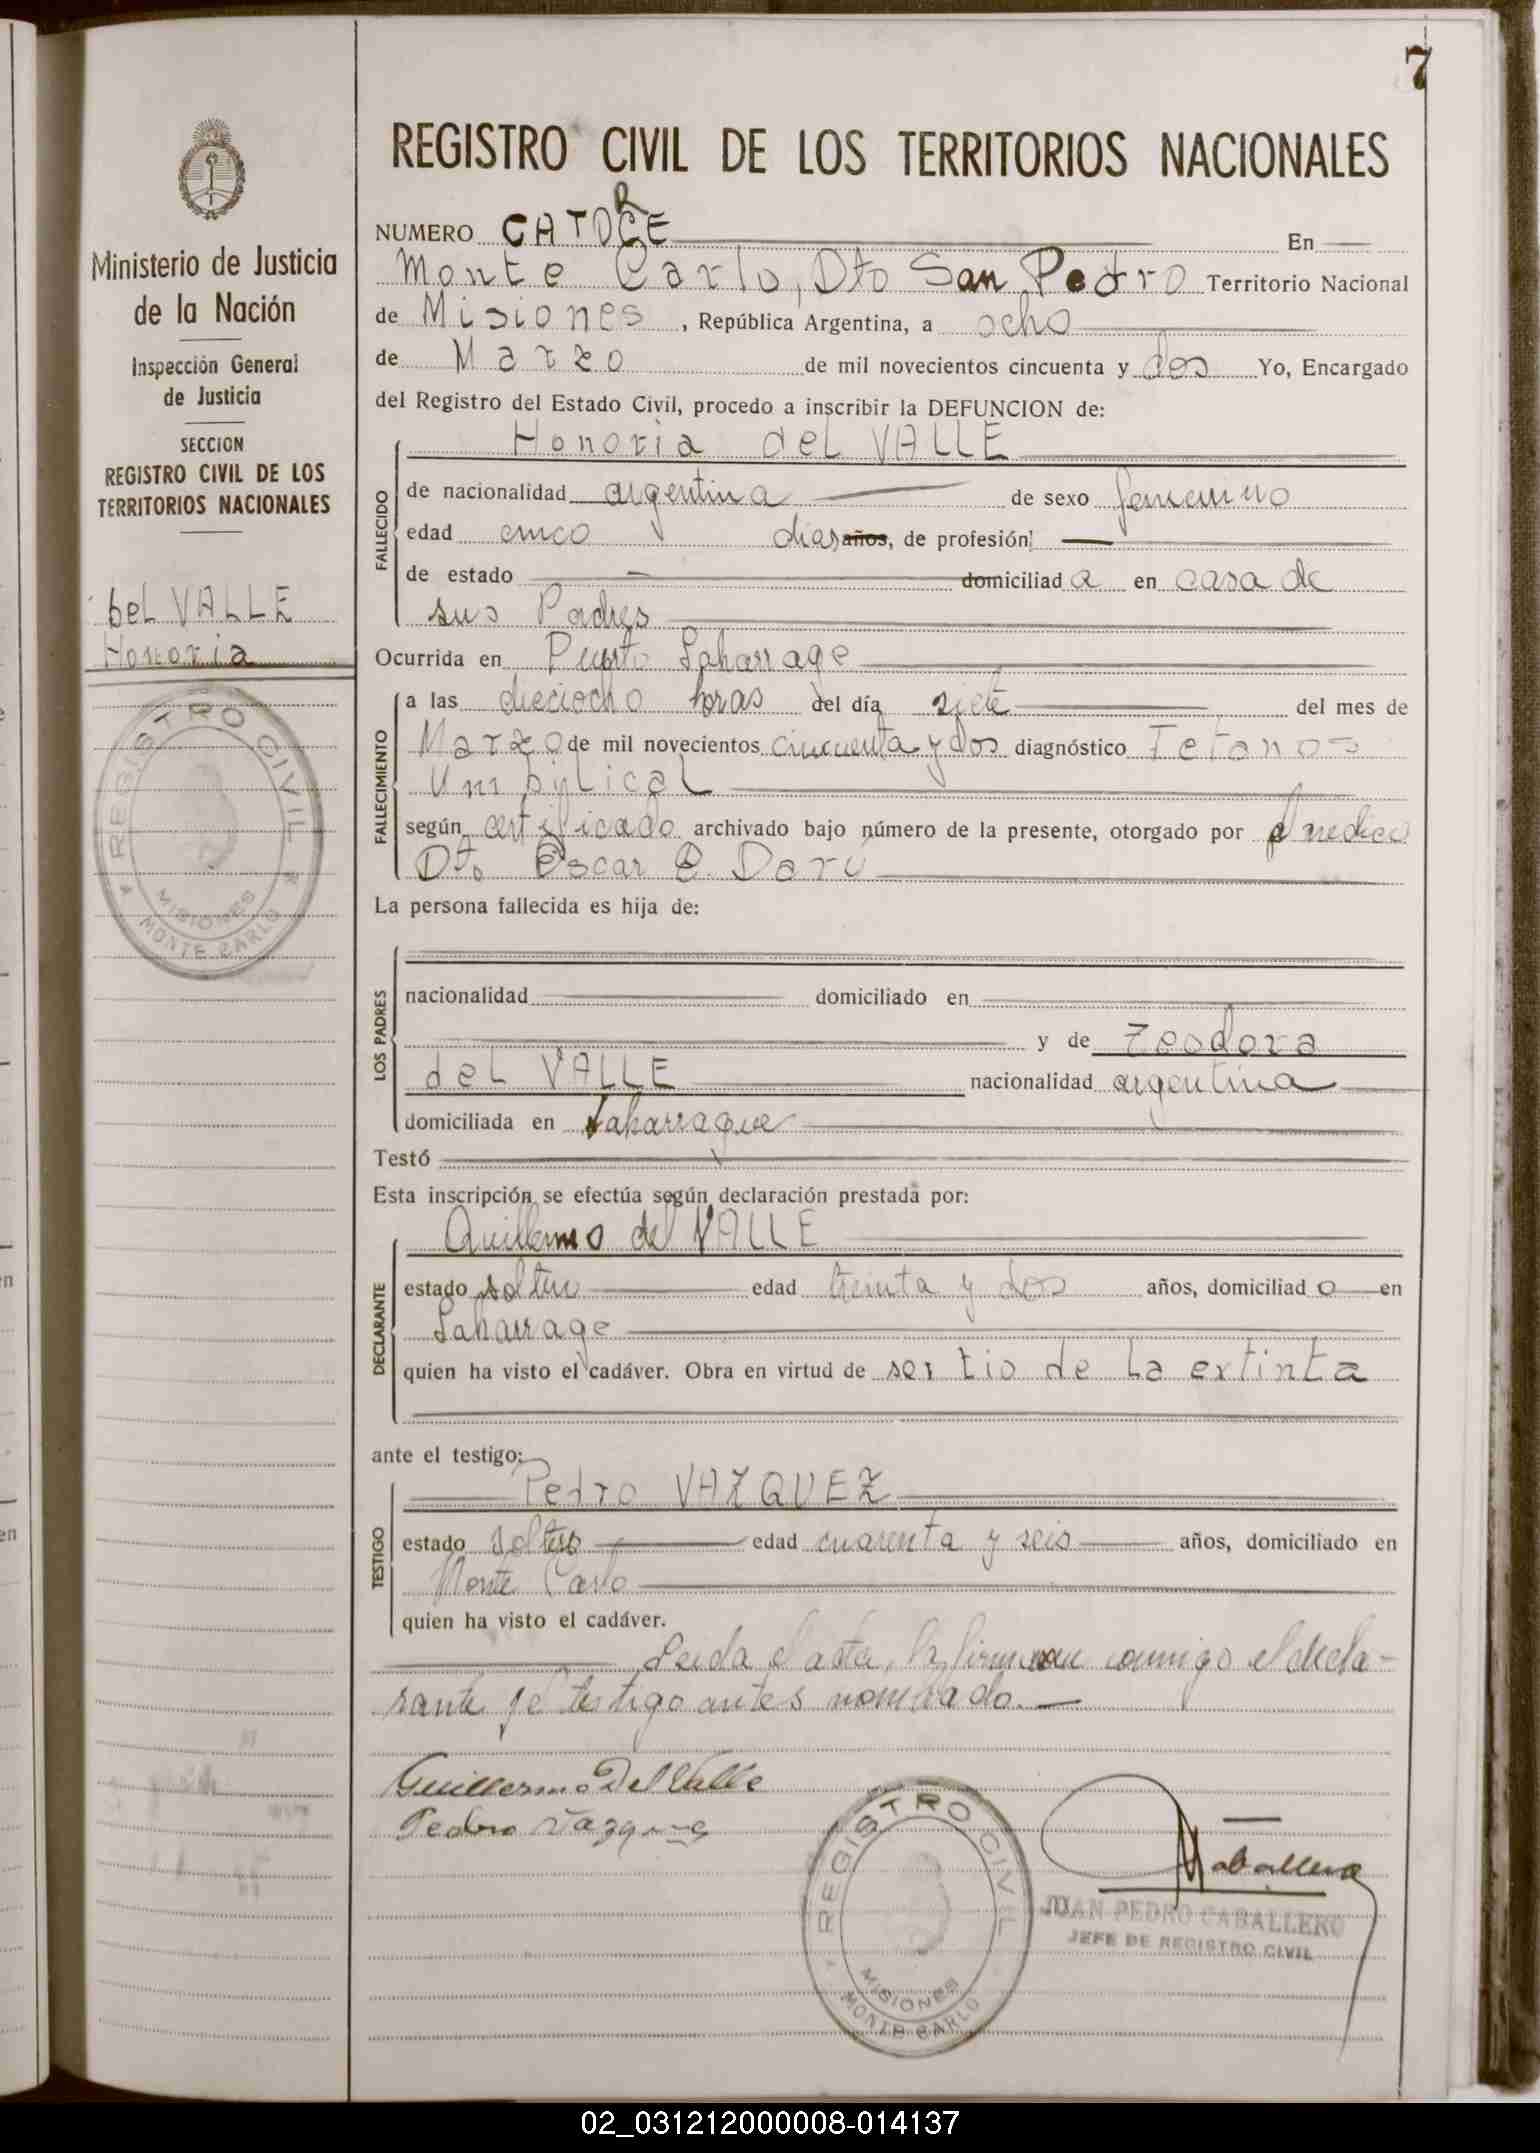 7
REGISTRO CIVIL DE LOS TERRITORIOS NACIONALES
Ministerio de Justicia
de la Nación
Inspección General
de Justicia
SECCION
REGISTRO CIVIL DE LOS
TERRITORIOS NACIONALES
del VALLE
Honoria
REGISTRO CIVIL
MISIONES
MONTE CARLO
NUMERO CATORCE En
Monte Carlo, Dto San Pedro Territorio Nacional
de Misiones, República Argentina, a ocho
de Marzo de mil novecientos cincuenta y dos Yo, Encargado
del Registro del Estado Civil, procedo a inscribir la DEFUNCION de:
FALLECIDO
Honoria del VALLE
de nacionalidad argentina de sexo femenino
edad cinco dias años, de profesión:
de estado domiciliad a en casa de
sus Padres
Ocurrida en Puerto Laharrage
FALLECIMIENTO
a las dieciocho horas del día siete del mes de
Marzo de mil novecientos cincuenta y dos diagnóstico Tetanos
Umbilical
según certificado archivado bajo número de la presente, otorgado por el medico
Dto Oscar Darú
La persona fallecida es hija de:
LOS PADRES
nacionalidad domiciliado en
y de Teodora
del VALLE nacionalidad argentina
domiciliada en Laharrague
Testó
Esta inscripción se efectúa según declaración prestada por:
DECLARANTE
Guillermo del VALLE
estado soltero edad treinta y dos años, domiciliad o en
Laharrage
quien ha visto el cadáver. Obra en virtud de ser tio de la extinta
ante el testigo:
TESTIGO
Pedro VAZQUEZ
estado soltero edad cuarenta y seis años, domiciliado en
Monte Carlo
quien ha visto el cadáver.
Leida el acta, la firman conmigo el decla-
rante y el testigo antes nombrado.
Guillermo Del Valle
Pedro Vazquez
Caballero
JUAN PEDRO CABALLERO
JEFE DE REGISTRO CIVIL
REGISTRO CIVIL
MISIONES
MONTE CARLO
02_031212000008-014137